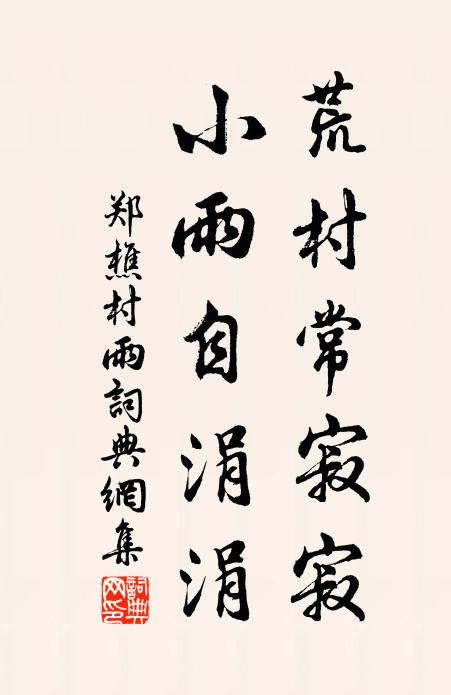 荒村常寂寂
小雨自涓涓
郑樵村雨詞典網集
詞典網印